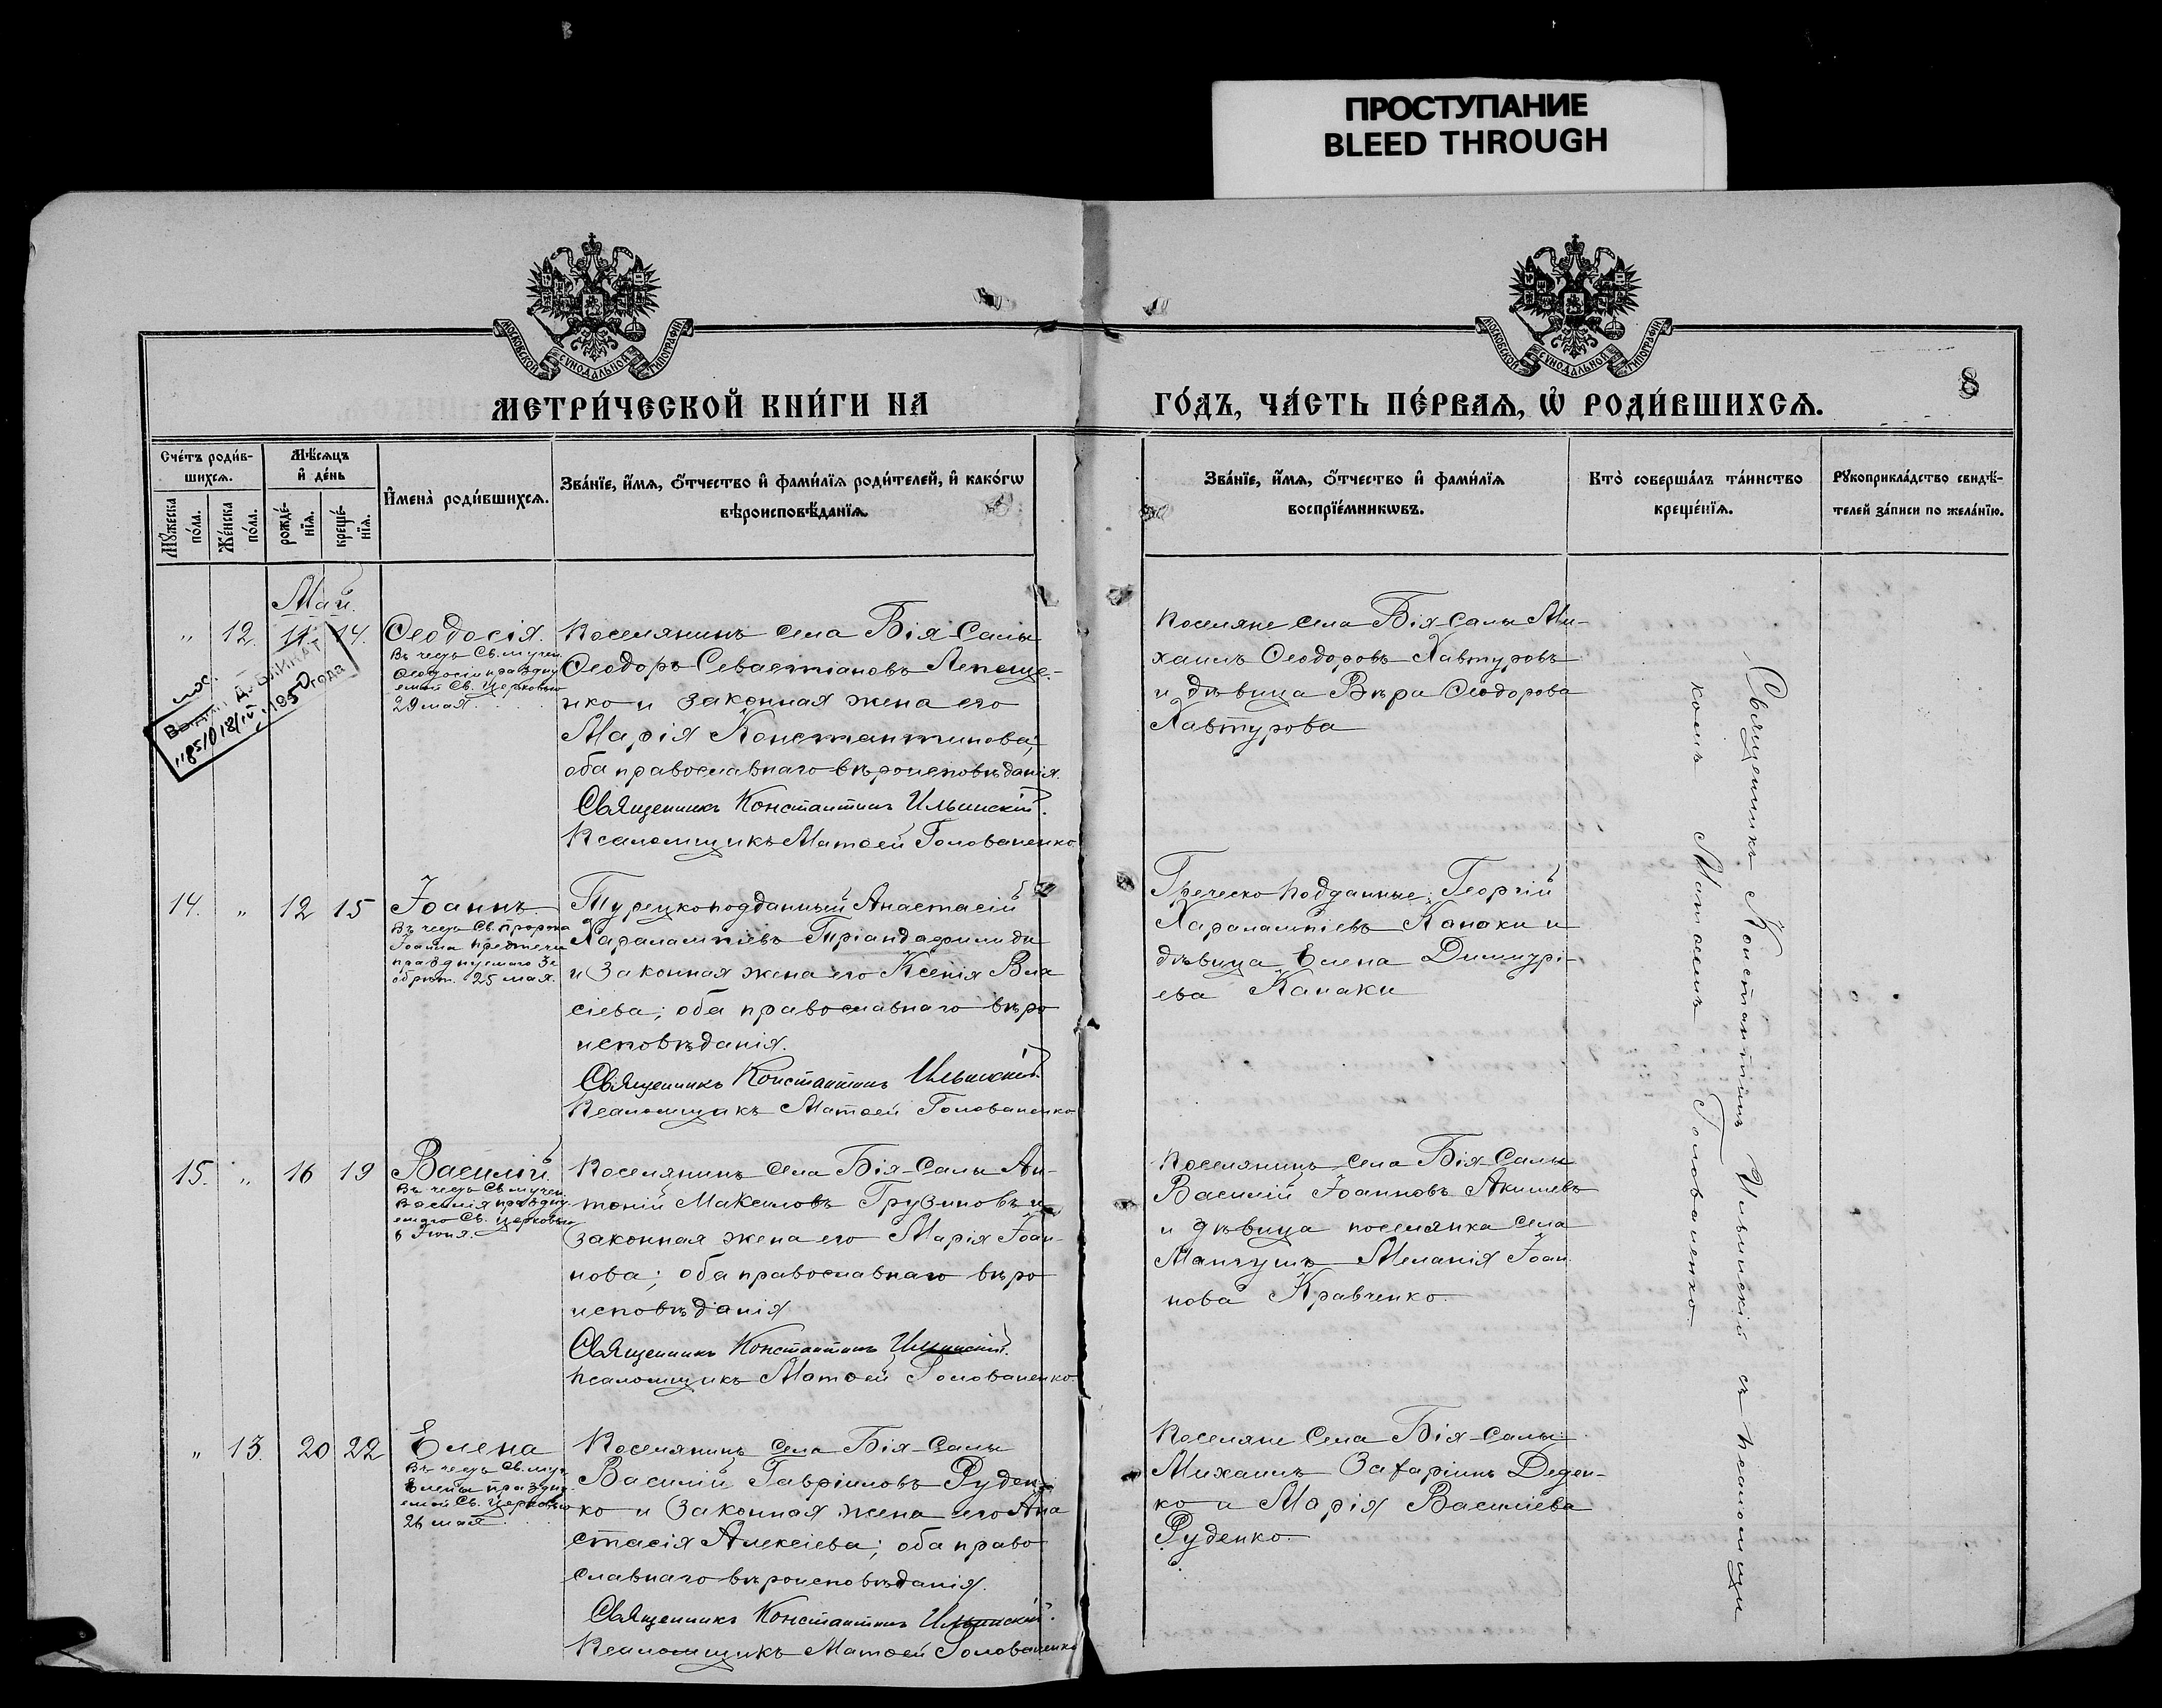 ПРОСТУПАНИЕ
BLEED THROUGH
МОСКОВСКОЙ СѴНОДАЛЬНОЙ ТИПОГРАФІИ
МОСКОВСКОЙ СѴНОДАЛЬНОЙ ТИПОГРАФІИ
МЕТРИ́ЧЕСКОЙ КНИ́ГИ НА
ГО́ДЪ, ЧА́СТЬ ПЕ́РВАѦ, Ѡ҆ РОДИ́ВШИХСѦ.
8
Сче́тъ роди́в-
шихсѧ.
Мꙋ́жеска
по́ла.
Же́нска
по́ла.
Мѣ́сѧцъ
и҆ де́нь
рожде́-
нїѧ.
креще́-
нїѧ.
И҆мена̀ роди́вшихсѧ.
Зва́нїе, и҆́мѧ, ѻ҆́тчество и҆ фами́лїѧ роди́телей, и҆ како́гѡ
вѣроисповѣ́данїѧ.
Зва́нїе, и҆́мѧ, ѻ҆́тчество и҆ фами́лїѧ
воспрїе́мникѡвъ.
Кто̀ соверша́лъ та́инство
креще́нїѧ.
Рꙋкоприкла́дство свидѣ́-
телей за́писи по жела́нїю.
Май.
" 12. 11. 14.
1950 года
Ѳеодосія.
Въ честь Св. мучен.
Ѳеодосіи праздну-
емой Св. Церковью
29 мая.
Поселянинъ села Бія-Салы
Ѳеодоръ Севастіановъ Лепеше-
нко и законная жена его
Марія Константинова;
оба православнаго вѣроисповѣданія.
Священникъ Константинъ Ильинскій.
Псаломщикъ Матѳей Голованенко
Поселяне села Бія-Салы Ми-
хаилъ Ѳеодоровъ Хавтуровъ
и дѣвица Вѣра Ѳеодорова
Хавтурова
14. " 12 15
Іоаннъ.
Въ честь Св. Пророка
Іоанна Предтечи
празднуемаго 3е
обрѣт. 25 мая.
Турецкоподданный Анастасій
Харалампіевъ Тріандафилиди
и законная жена его Ксенія Вла
сіева; оба православнаго вѣро
исповѣданія.
Священникъ Константинъ Ильинскій
Псаломщикъ Матѳей Голованенко
Греческо подданные: Георгій
Харалампіевъ Канаки и
дѣвица Елена Димитрі-
ева Канаки
15. " 16 19
Василій.
Въ честь Св. мучен.
Василія праздну-
емаго Св. Церковью
6 Іюня.
Поселянинъ села Бія-Салы Ан-
тоній Максимовъ Грузиновъ и
законная жена его Марія Іоан-
нова; оба православнаго вѣро
исповѣданія
Священникъ Константинъ Ильинскій.
Псаломщикъ Матѳей Голованенко
Поселянинъ села Бія-Салы
Василій Іоанновъ Акишевъ
и дѣвица поселянка села
Мангушъ Меланія Іоан
нова Кравченко.
" 13. 20 22
Елена
Въ честь Св. муч.
Елены праздну-
емой Св. Церковью
26 мая
Поселянинъ села Бія-Салы
Василій Гавріиловъ Руден-
ко и законная жена его Ана
стасія Алексіева; оба право
славнаго вѣроисповѣданія.
Священникъ Константинъ Ильинскій.
Псаломщикъ Матѳей Голованенко
Поселяне села Бія-Салы:
Михаилъ Захаріинъ Деден-
ко и Марія Василіева
Руденко.
Священникъ Константинъ Ильинскій съ псаломщи
комъ Матѳеемъ Голованенко